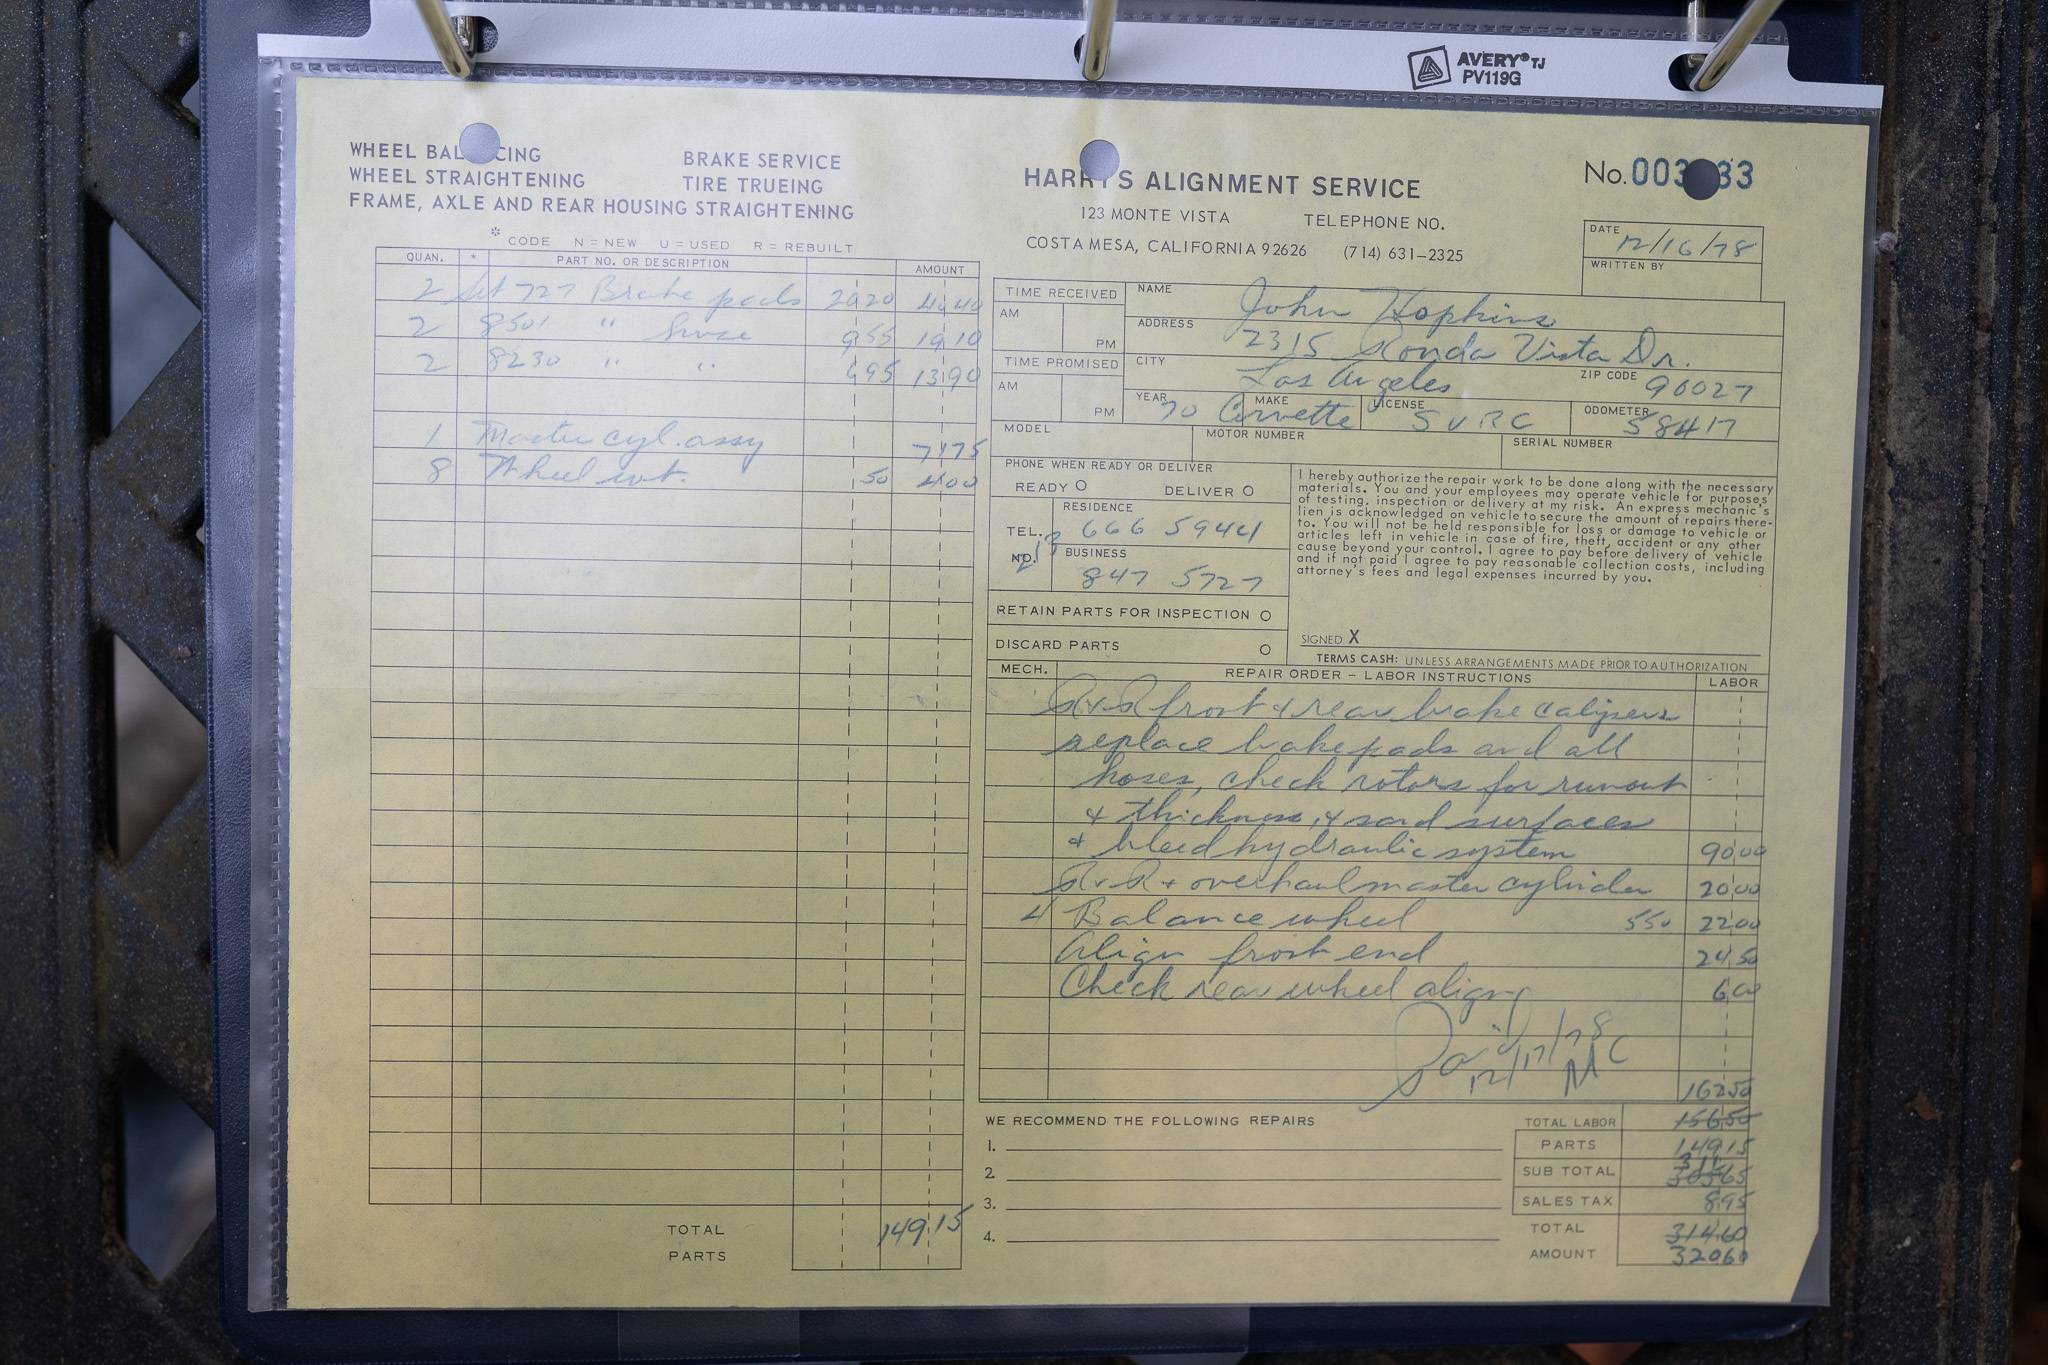 AVERY® TJ
PV119G
WHEEL BAL CING
WHEEL STRAIGHTENING
FRAME, AXLE AND REAR HOUSING STRAIGHTENING
BRAKE SERVICE
TIRE TRUEING
* CODE N = NEW U = USED R = REBUILT
QUAN. * PART NO. OR DESCRIPTION AMOUNT
2 Set 727 Brake pads 20 20 40 40
2 8501 " 9 55 19 10
2 8230 " " 6 95 13 90
1 Master cyl. assy 71 75
8 Wheel wt. 50 4 00
TOTAL PARTS 149 15
HARRY'S ALIGNMENT SERVICE
123 MONTE VISTA TELEPHONE NO.
COSTA MESA, CALIFORNIA 92626 (714) 631-2325
No. 003 33
DATE 12/16/78
WRITTEN BY
TIME RECEIVED
AM
PM
TIME PROMISED
AM
PM
NAME John Hopkins
ADDRESS 2315 Ronda Vista Dr.
CITY Los Angeles ZIP CODE 90027
YEAR 70 MAKE Corvette LICENSE SVRC ODOMETER 58417
MODEL MOTOR NUMBER SERIAL NUMBER
PHONE WHEN READY OR DELIVER
READY DELIVER
TEL. NO. 213
RESIDENCE 666 5944
BUSINESS 847 5727
RETAIN PARTS FOR INSPECTION
DISCARD PARTS
I hereby authorize the repair work to be done along with the necessary
materials. You and your employees may operate vehicle for purposes
of testing, inspection or delivery at my risk. An express mechanic's
lien is acknowledged on vehicle to secure the amount of repairs there-
to. You will not be held responsible for loss or damage to vehicle or
articles left in vehicle in case of fire, theft, accident or any other
cause beyond your control. I agree to pay before delivery of vehicle
and if not paid I agree to pay reasonable collection costs, including
attorney's fees and legal expenses incurred by you.
SIGNED X
TERMS CASH: UNLESS ARRANGEMENTS MADE PRIOR TO AUTHORIZATION
MECH. REPAIR ORDER – LABOR INSTRUCTIONS LABOR
R & R front & rear brake calipers
replace brake pads and all
hoses, check rotors for runout
& thickness, & sand surfaces
& bleed hydraulic system 90 00
R & R & overhaul master cylinder 20 00
4 Balance wheel 5 50 22 00
Align front end 24 50
Check rear wheel align 6 00
Paid
12/17/78
MC
162 50
WE RECOMMEND THE FOLLOWING REPAIRS
1.
2.
3.
4.
TOTAL LABOR 156 50
PARTS 149 15
SUB TOTAL 311 305 65
SALES TAX 8 95
TOTAL AMOUNT 314 60
320 60